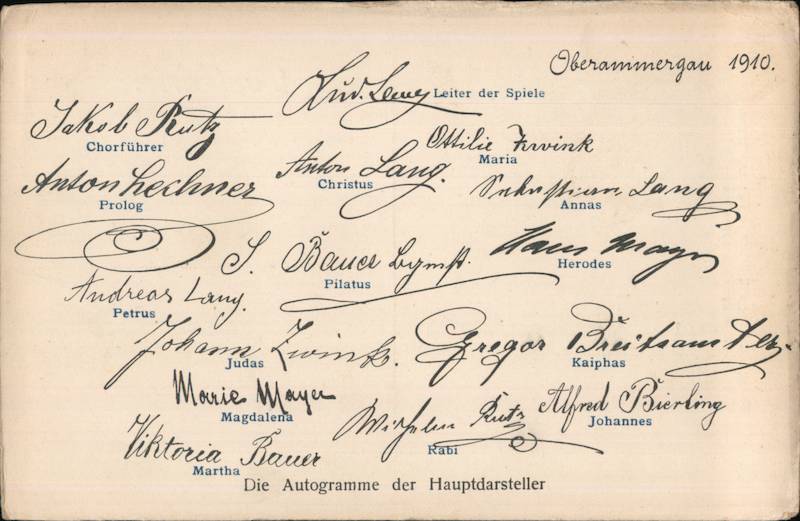 Oberammergau 1910.
Lud. Lang Leiter der Spiele
Jakob Rutz
Chorführer
Ottilie Zwink
Maria
Anton Lang.
Christus
Anton Lechner
Prolog
Sebastian Lang
Annas
Hans Mayr
Herodes
S. Bauer Bgmst.
Pilatus
Andreas Lang.
Petrus
Johann Zwink.
Judas
Gregor Breitsamter.
Kaiphas
Marie Mayer
Magdalena
Alfred Bierling
Johannes
Wilhelm Rutz
Rabi
Viktoria Bauer
Martha
Die Autogramme der Hauptdarsteller